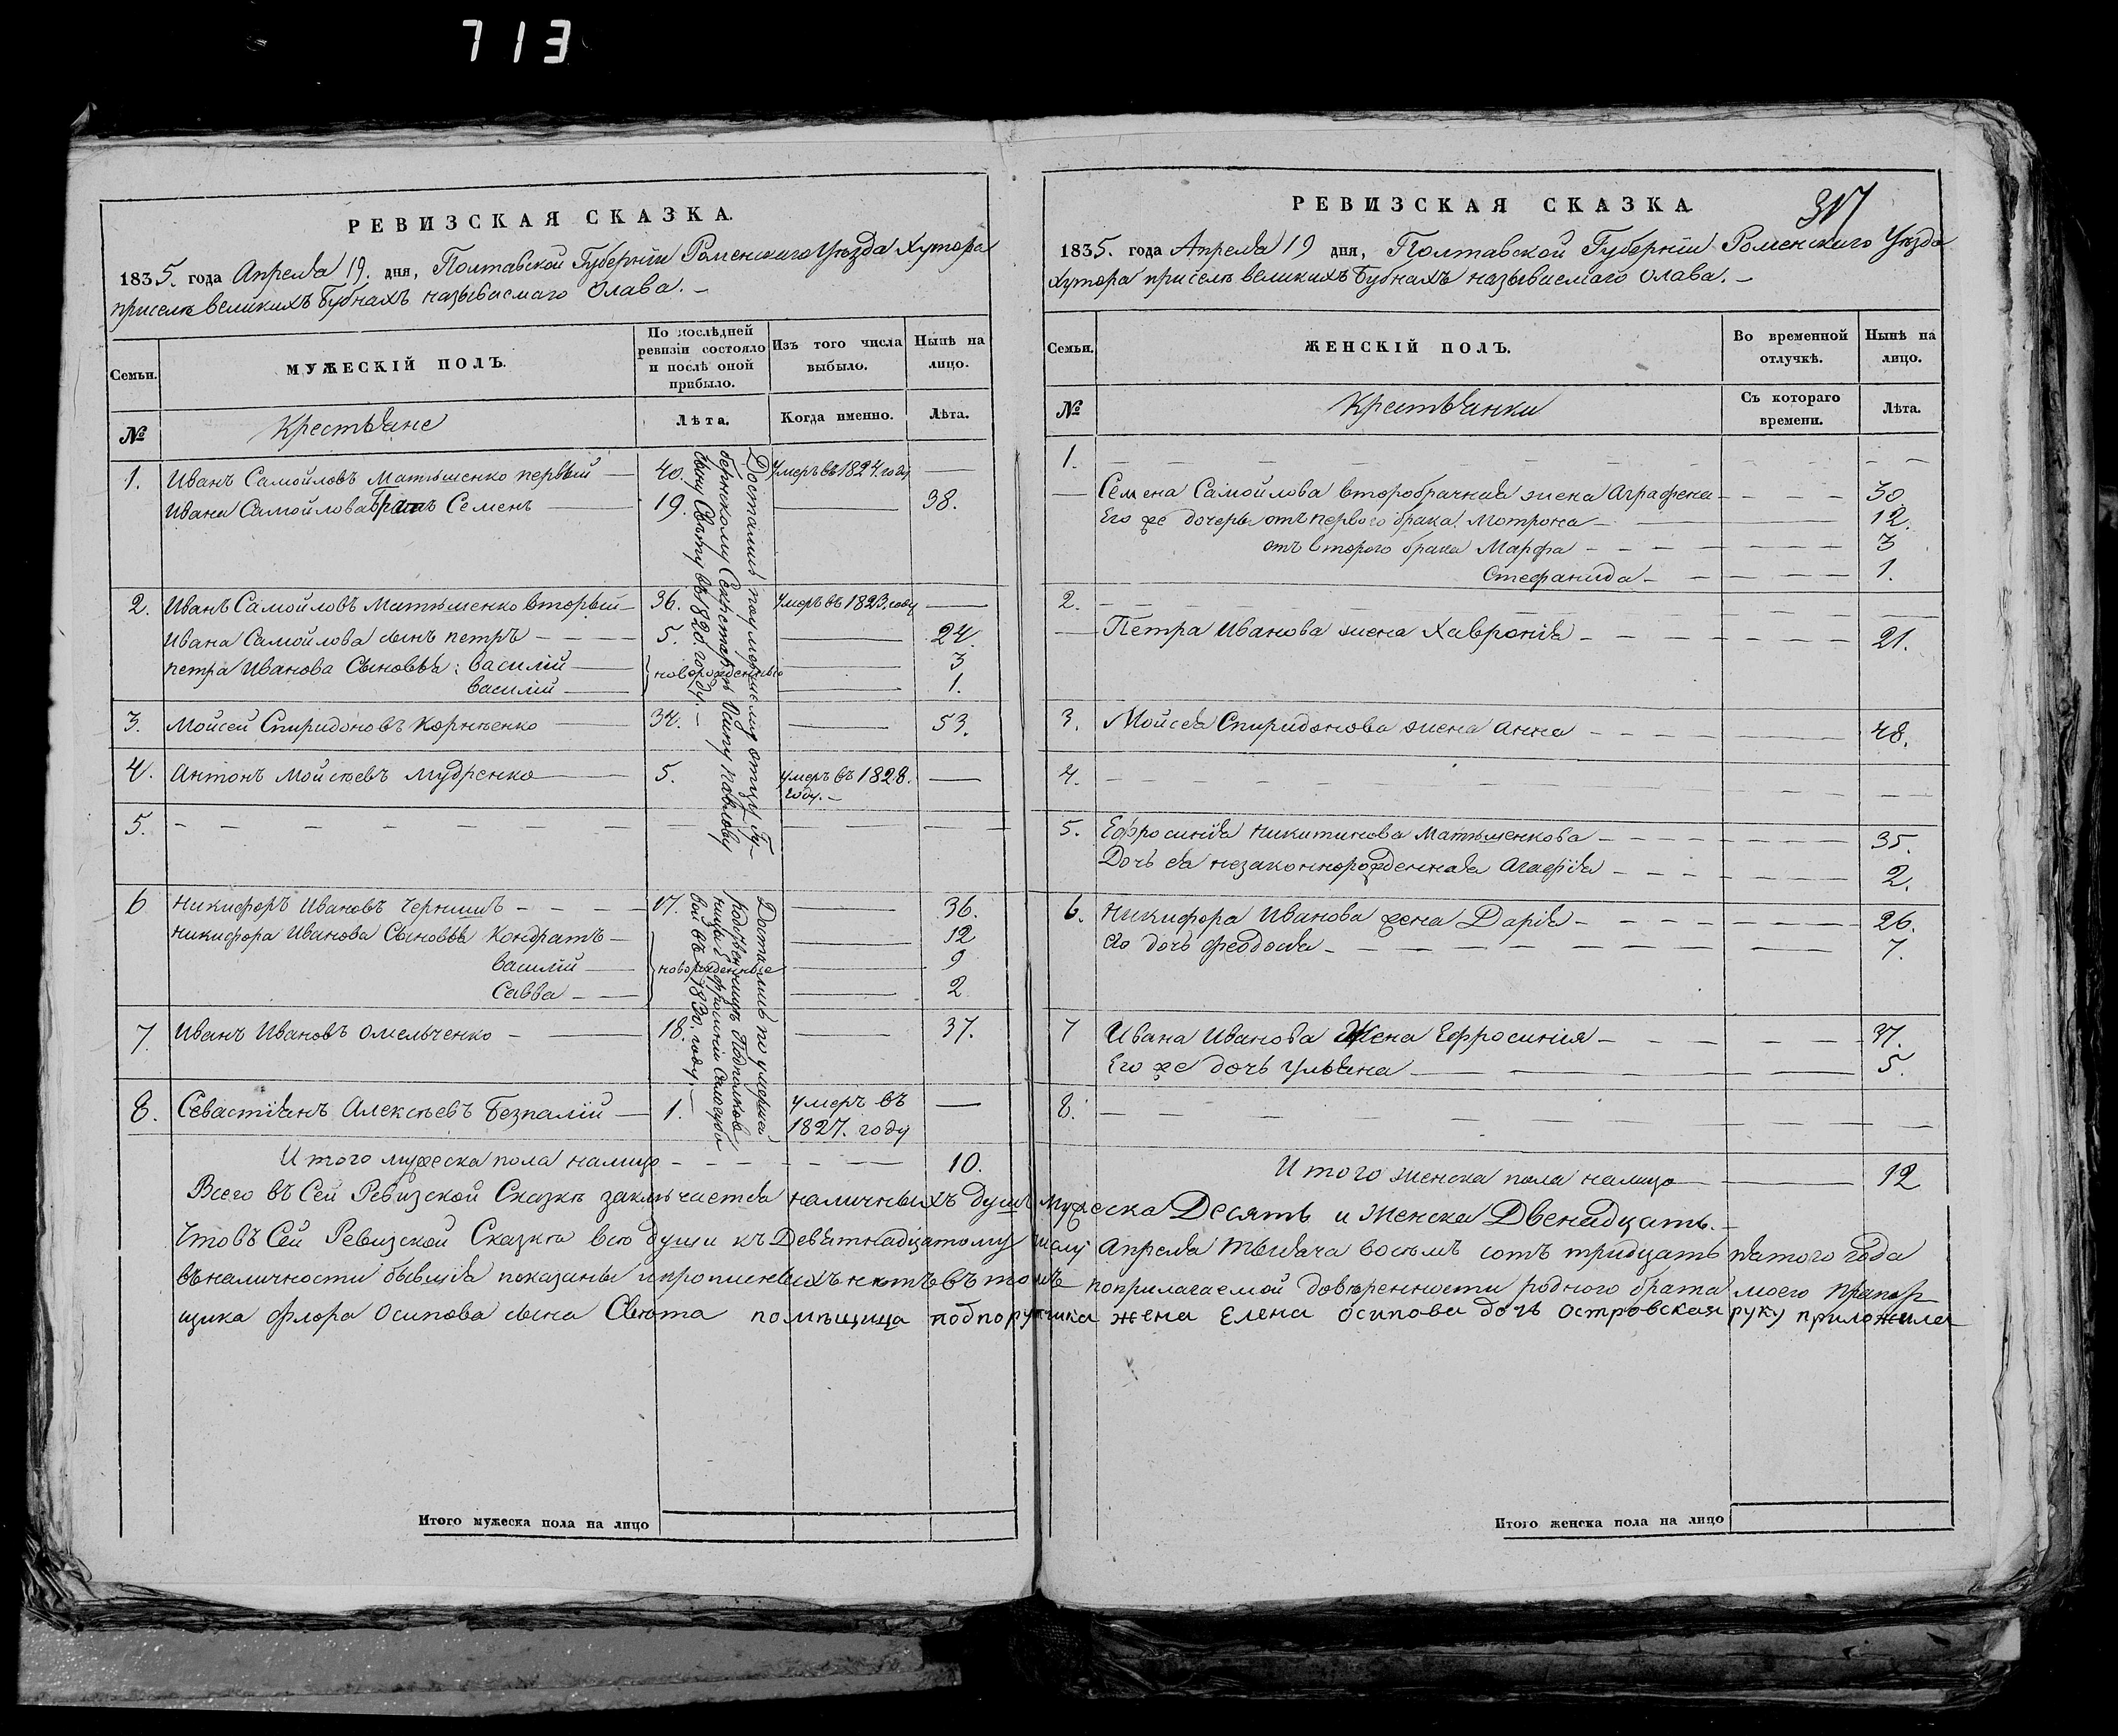 713
РЕВИЗСКАЯ СКАЗКА.
1835. года Апреля 19. дня, Полтавской Губернїи Роменского Уезда Хутора
приселе великихъ Бубнахъ называемаго Олава. —
Семьи.
МУЖЕСКІЙ ПОЛЪ.
По послѣдней ревизіи состояло и послѣ оной прибыло.
Изъ того числа выбыло.
Нынѣ на лицо.
№
Крестьяне
Лѣта.
Когда именно.
Лѣта.
1. Иванъ Самойловъ Матяшенко первый — 40. Умеръ въ 1824. году —
Ивана Самойлова Братъ Семенъ — 19. — 38.
2. Иванъ Самойловъ Матяшенко вторый — 36. Умеръ въ 1823. году —
Ивана Самойлова сынъ петръ — 5. — 24.
петра Иванова Сыновья: василій — новорожденныe — 3
василій — 1.
3. Мойсей Спиридоновъ Корнѣенко — 34. — 53.
4. Антонъ Мойсѣевъ Мудренко — 5. умеръ въ 1828. —
году. —
5. — — — — — —
6 Никифоръ Ивановъ Чернишъ — 17. — 36.
Никифора Иванова Сыновья Кондратъ — 12
василій — новорожденные — 9
Савва — 2
7. Иванъ Ивановъ Омельченко — 18. — 37.
8. Севастіянъ Алексѣевъ Безпалій — 1. умеръ въ —
1827. году
Достались по умершему отцу Гу-
бернскому Секретарю Осипу павлову
сыну Свѣту въ 1820 году. —
Достались по умершей
Подполков
ницы Ефросиніи
въ 1830. году. —
Итого мужеска пола налицо — 10.
РЕВИЗСКАЯ СКАЗКА
317
1835. года Апреля 19 дня, Полтавской Губернїи Роменского Уезда
хутора приселе великихъ Бубнахъ называемаго Олава. —
Семьи.
ЖЕНСКІЙ ПОЛЪ.
Во временной отлучкѣ.
Нынѣ на лицо.
№
Крестьянки
Съ котораго времени.
Лѣта.
1. — — — — —
— Семена Самойлова второбрачная жена Аграфена — 30
Его же дочерь отъ первого брака Мотрона — 12.
отъ второго брака Марфа — 3
Стефанида — 1.
2. — — — — —
— Петра Иванова жена Хавронія — 21.
3. Мойсея Спиридонова жена Анна — 48.
4. — — — — —
5. Ефросинія Никитинова Матяшенкова — 35.
Дочь ея незаконнорожденная Агафія — 2.
6. Никифора Иванова жена Дарія — 26.
его дочь феодосія — 7.
7 Ивана Иванова Жена Ефросинія — 37.
Его же дочь Ульяна — 5.
8. — — — — —
Итого женска пола налицо — 12
Всего въ Сей Ревизской Сказке заключается наличныхъ душъ мужеска Десять и женска Двенадцать. —
Что въ Сей Ревизской Сказке все души къ Девятнадцатому числу Апреля тысяча восемъ сотъ тридцать пятого года
въ наличности бывшія показаны и прописныхъ нетъ въ томъ поприлагаемой доверенности родного брата моего прапор
щика флора Осипова сына Свѣта помѣщица подпорутчика жена Елена Осипова дочь Островская руку приложила
Итого мужеска пола на лицо
Итого женска пола на лицо